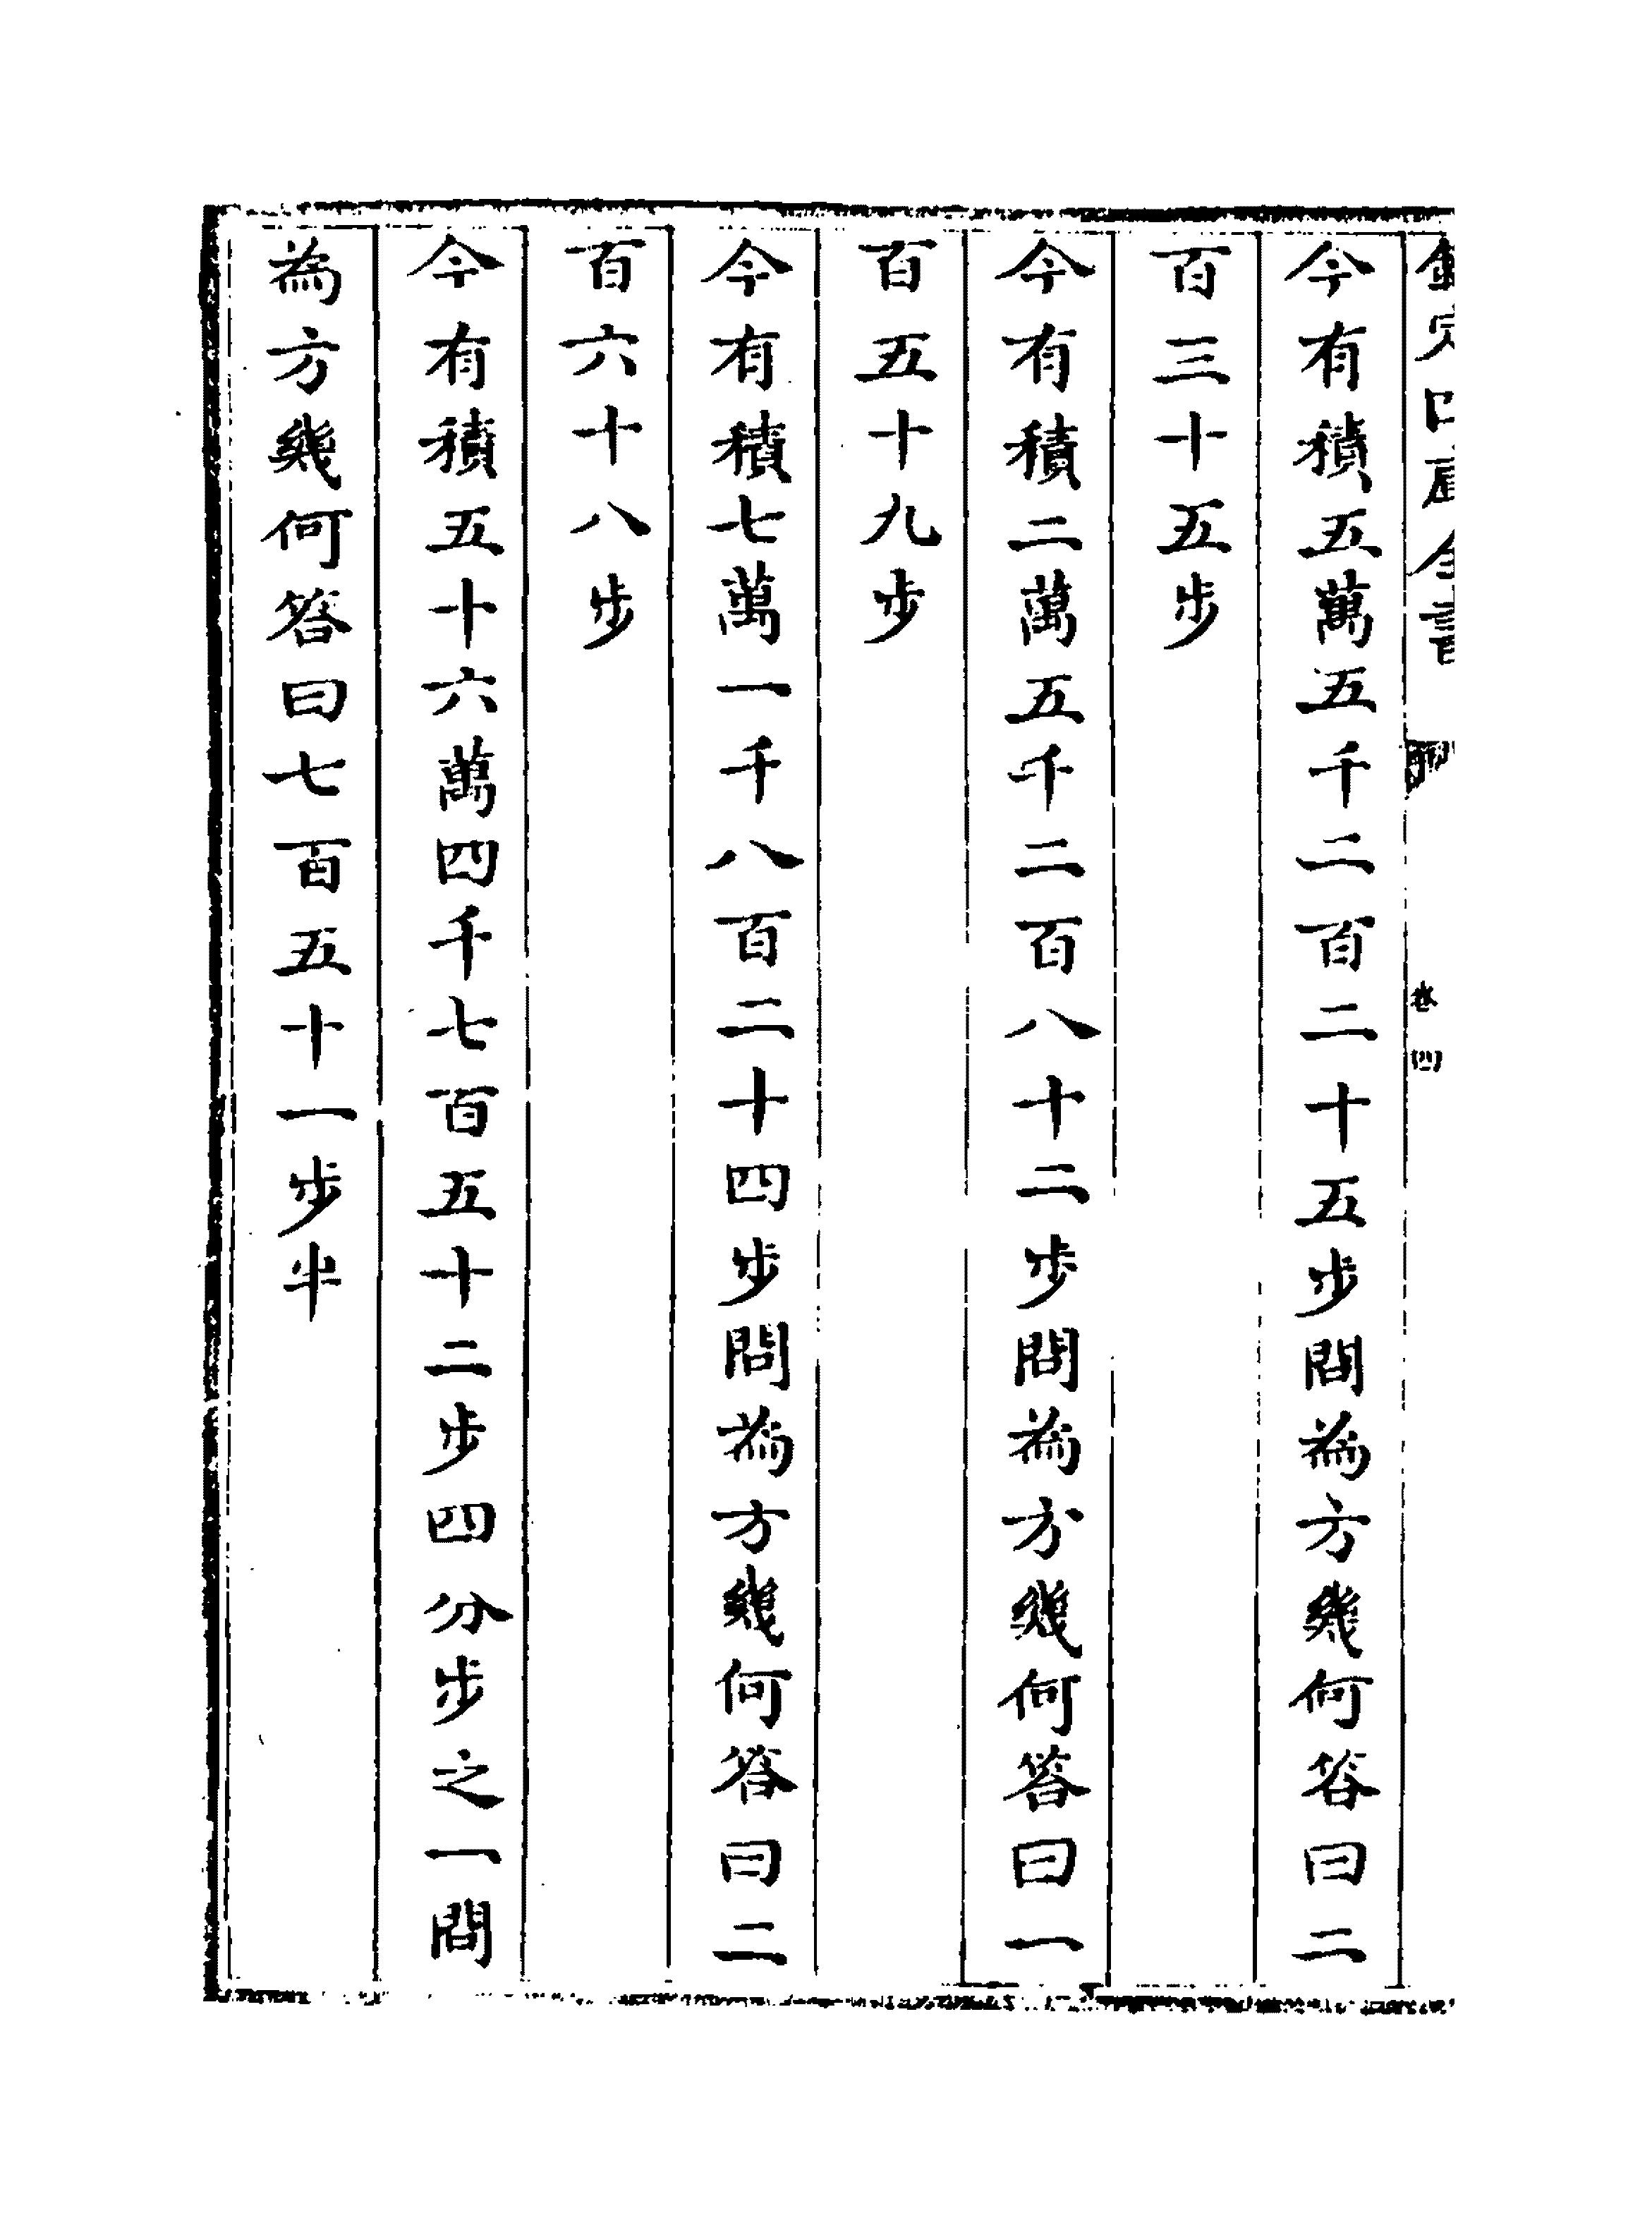 欽定四庫全書
卷四
今有積五萬五千二百二十五步問為方幾何答曰二
百三十五步
今有積二萬五千二百八十二步問為方幾何答曰一
百五十九步
今有積七萬一千八百二十四步問為方幾何答曰二
百六十八步
今有積五十六萬四千七百五十二步四分步之一問
為方幾何答曰七百五十一步半